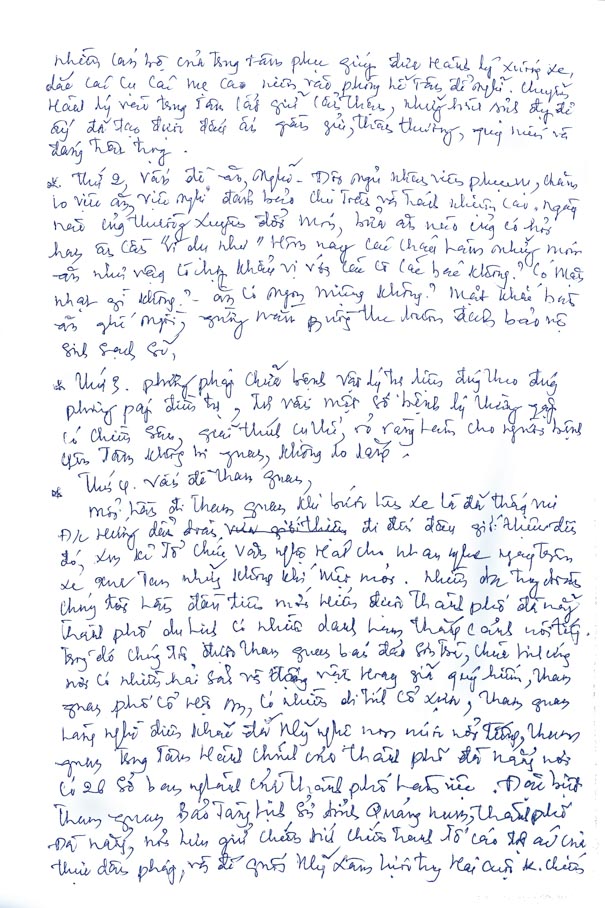 nhiều cán bộ của trung tâm phục giúp đưa Hành lý xuống xe,
dắt các cụ các mẹ cao niên vào phòng lễ tân để nghỉ. Chuyển
Hành lý vào trung tâm cất giữ cẩn thận, những hình ảnh đẹp đẽ
ấy đã tạo được dấu ấn gần gủi, thân thương, quý mến và
đáng trân trọng.
* Thứ 2, vấn đề ăn, nghỉ. Đội ngũ nhân viên phục vụ, chăm
lo việc ăn việc nghỉ đảm bảo chu toàn và trách nhiệm cao. ngày
nào cũng thường xuyên đổi món, bữa ăn nào cũng có hỏi
hay ân cần ví dụ như "Hôm nay các cháu làm những món
ăn như vậy có hợp khẩu vị với các cô các bác không? có mặn
nhạt gì không? - ăn có ngon miệng không? mặt khác bàn
ăn ghế ngồi, giường màn phòng luôn đảm bảo vệ
sinh sạch sẽ,
* Thứ 3. phương pháp chữa bệnh vật lý trị liệu đúng theo đúng
phương pháp điều trị, tư vấn một số bệnh lý thường gặp
có chiều sâu, giải thích cụ thể, rỏ ràng làm cho người bệnh
yên tâm không bi quan, không lo lắng.
* Thứ 4. vấn đề tham quan,
mỗi lần đi tham quan khi bước lên xe là đã thấy vui
Đ/c hướng dẫn đoàn đi đến đâu giới thiệu đến
đó, tổ chức văn nghệ Hát cho nhau nghe ngay trên
xe xua tan những không khí mệt mỏi. nhiều đ/c trong đoàn
chúng tôi lần đầu tiên mới biết được Thành phố đà nẵng
Thành phố du lịch có nhiều danh lam thắng cảnh nổi tiếng.
trong đó chúng tôi được tham quan bán đảo Sơn Trà, chùa linh ứng
nơi có nhiều hải sản và động vật Hoang giã quý hiếm, tham
quan phố cổ Hội An, có nhiều di tích cổ xưa, tham quan
làng nghề điêu khắc đá Mỹ nghệ non nước nổi tiếng, tham
quan trung tâm Hành chính của thành phố đà nẵng nơi
có 26 sở ban nghành của thành phố làm việc. Đặc biệt
tham quan Bảo Tàng lịch sử tỉnh Quảng nam, thành phố
đà nẵng, nơi lưu giữ chứng tích chiến tranh tố cáo tội ác của
thực dân pháp, và đế quốc Mỹ xâm lược trong Hai cuộc k. chiến